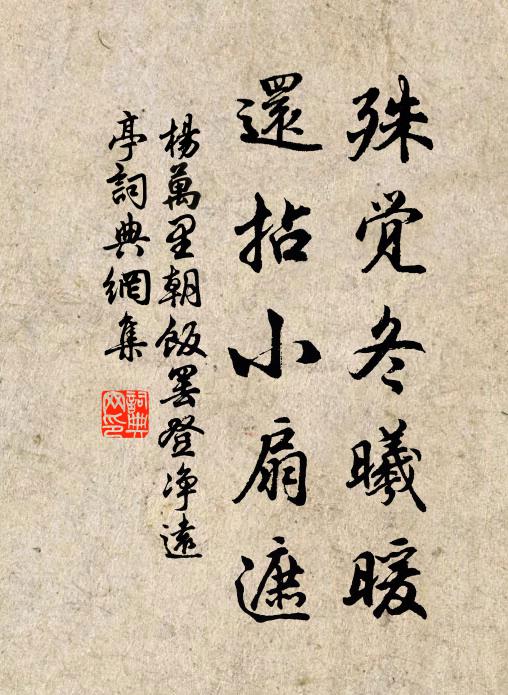 殊觉冬曦暖
還拈小扇遮
楊萬里朝飯罢登净遠
亭詞典網集
詞典
网印